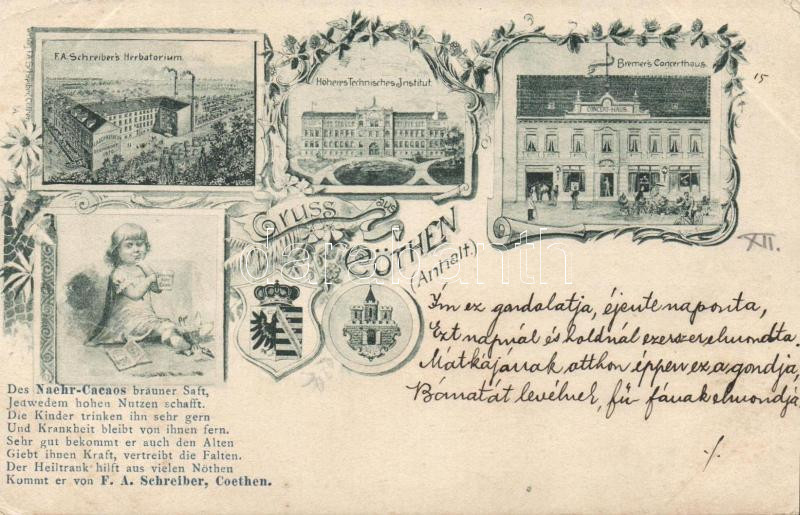 F.A. Schreiber's Herbatorium.
Höheres Technisches Institut.
Bremer's Concerthaus.
CONCERT-HAUS
15
Gruss aus
CÖTHEN
(Anhalt.)
XII.
darabanth
Im ez gondolatja, éjente naponta,
Ezt napnál és holdnál ezerszer elmondta.
Mátkájának otthon éppen ez a gondja,
Bánatát levélnek, fű fának elmondja
./.
Des Naehr-Cacaos brauner Saft,
Jedwedem hohen Nutzen schafft.
Die Kinder trinken ihn sehr gern
Und Krankheit bleibt von ihnen fern.
Sehr gut bekommt er auch den Alten
Giebt ihnen Kraft, vertreibt die Falten.
Der Heiltrank hilft aus vielen Nöthen
Kommt er von F. A. Schreiber, Coethen.